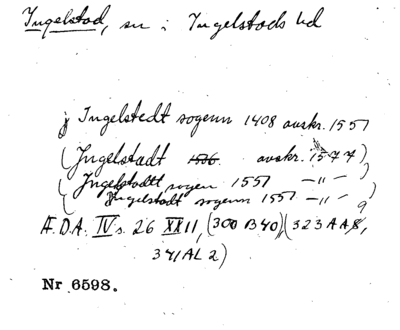 Ingelstad, sn i Ingelstads hd
j Ingelstedt sogenn 1408 avskr. 1551
(Jngelstadt 1526 avskr. 1577)
(Jngelstadtt sogen 1551 –"– )
( Jngelstadt sogenn 1551 –"– )
Æ.D.A. IV s. 26 XXII, (300 B40), (323 A A8,
341 AL 2)
Nr 6598.